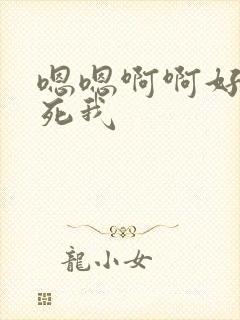 嗯嗯啊啊好
死我
龍小女